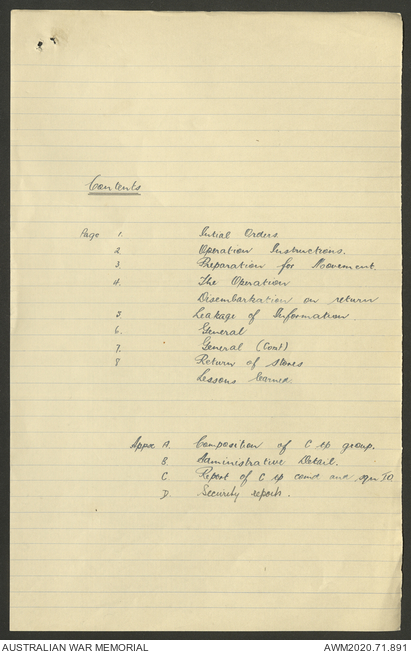 Contents
Page 1. Initial Orders
2 Operation Instructions.
3. Preparation for Movement.
4. The Operation
Disembarkation on return
5. Leakage of Information.
6. General
7. General (Cont)
8 Return of stores
Lessons learned
Appx A. Composition of C sp group.
B. Administrative Detail.
C Report of C sp comd and
D. Security reports.
AUSTRALIAN WAR MEMORIAL
AWM2020.71.891